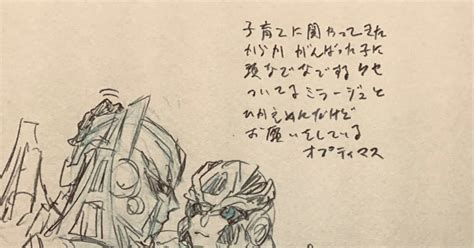 子育てに関わってきた
からか がんばった子に
頭なでなでするクセ
ついてるミラージュと
ひかえめにだけど
お願いをしている
オプティマス